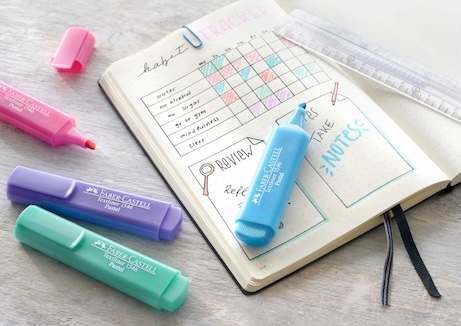 habit TRACKER
water
no alcohol
no sugar
go to gym
mindfulness
sleep
REVIEW
TAKE
NOTES
FABER-CASTELL
Textliner 1546
Pastel
FABER-CASTELL
Textliner 1546
Pastel
FABER-CASTELL
Textliner 1546
Pastel
FABER-CASTELL
Textliner 1546
Pastel